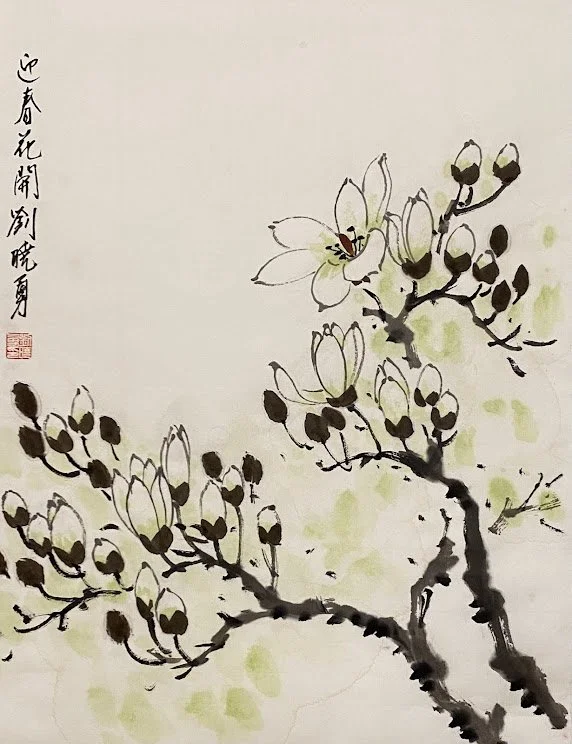 迎春花開劉曉勇